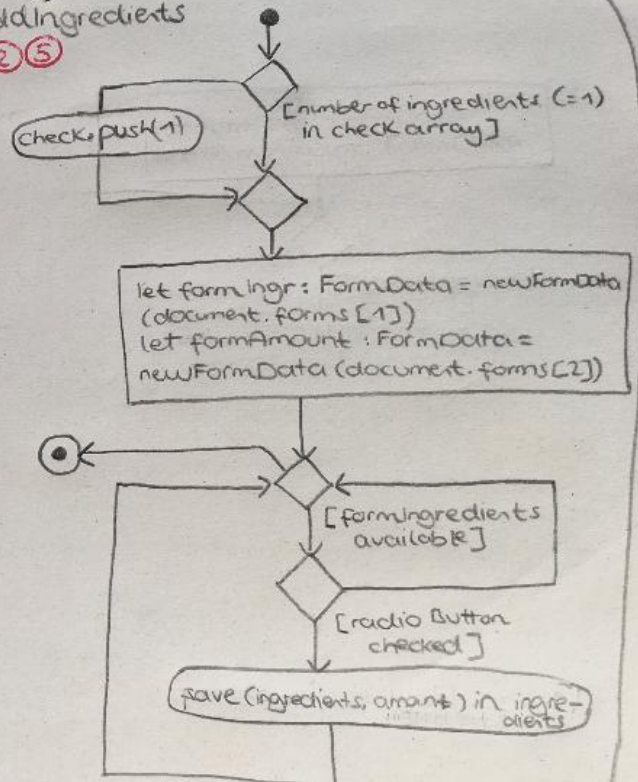 ddIngredients
② ⑤
[number of ingredients (=1)
in check array]
check.push(1)
let formIngr: FormData = newFormData
(document.forms[1])
let formAmount: FormData =
newFormData (document.forms[2])
[formIngredients
available]
[radio Button
checked]
save (ingredients, amant) in ingre-
dients